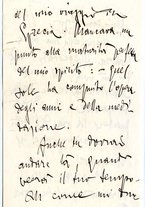 del mio viaggio in
Grecia. Mancava un
punto alla maturità
del mio spirito: quel
sole ha compiuto l'opera
degli anni e della medi-
tazione.
Anche tu dovrai
andare là, quando
verrà il tuo tempo.
come mi